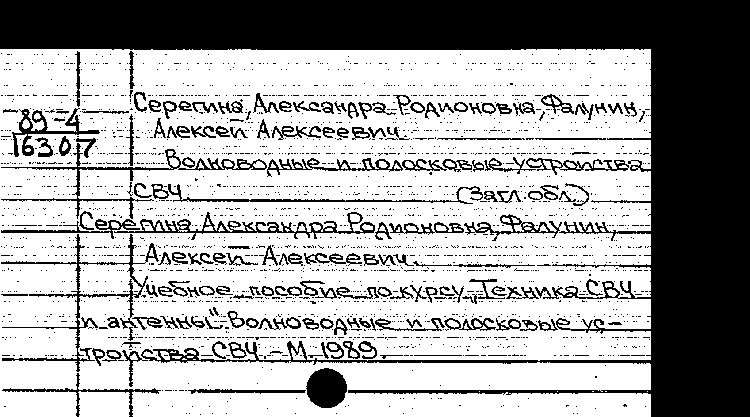 Серегина, Александра Родионовна, Фалунин,
Алексей Алексеевич.
89-4
16307
Волноводные и полосковые устройства
СВЧ. (Загл. обл.)
Серегина, Александра Родионовна, Фалунин,
Алексей Алексеевич.
Учебное пособие по курсу „Техника СВЧ
и антенны". Волноводные и полосковые ус-
тройства СВЧ. - М., 1989.